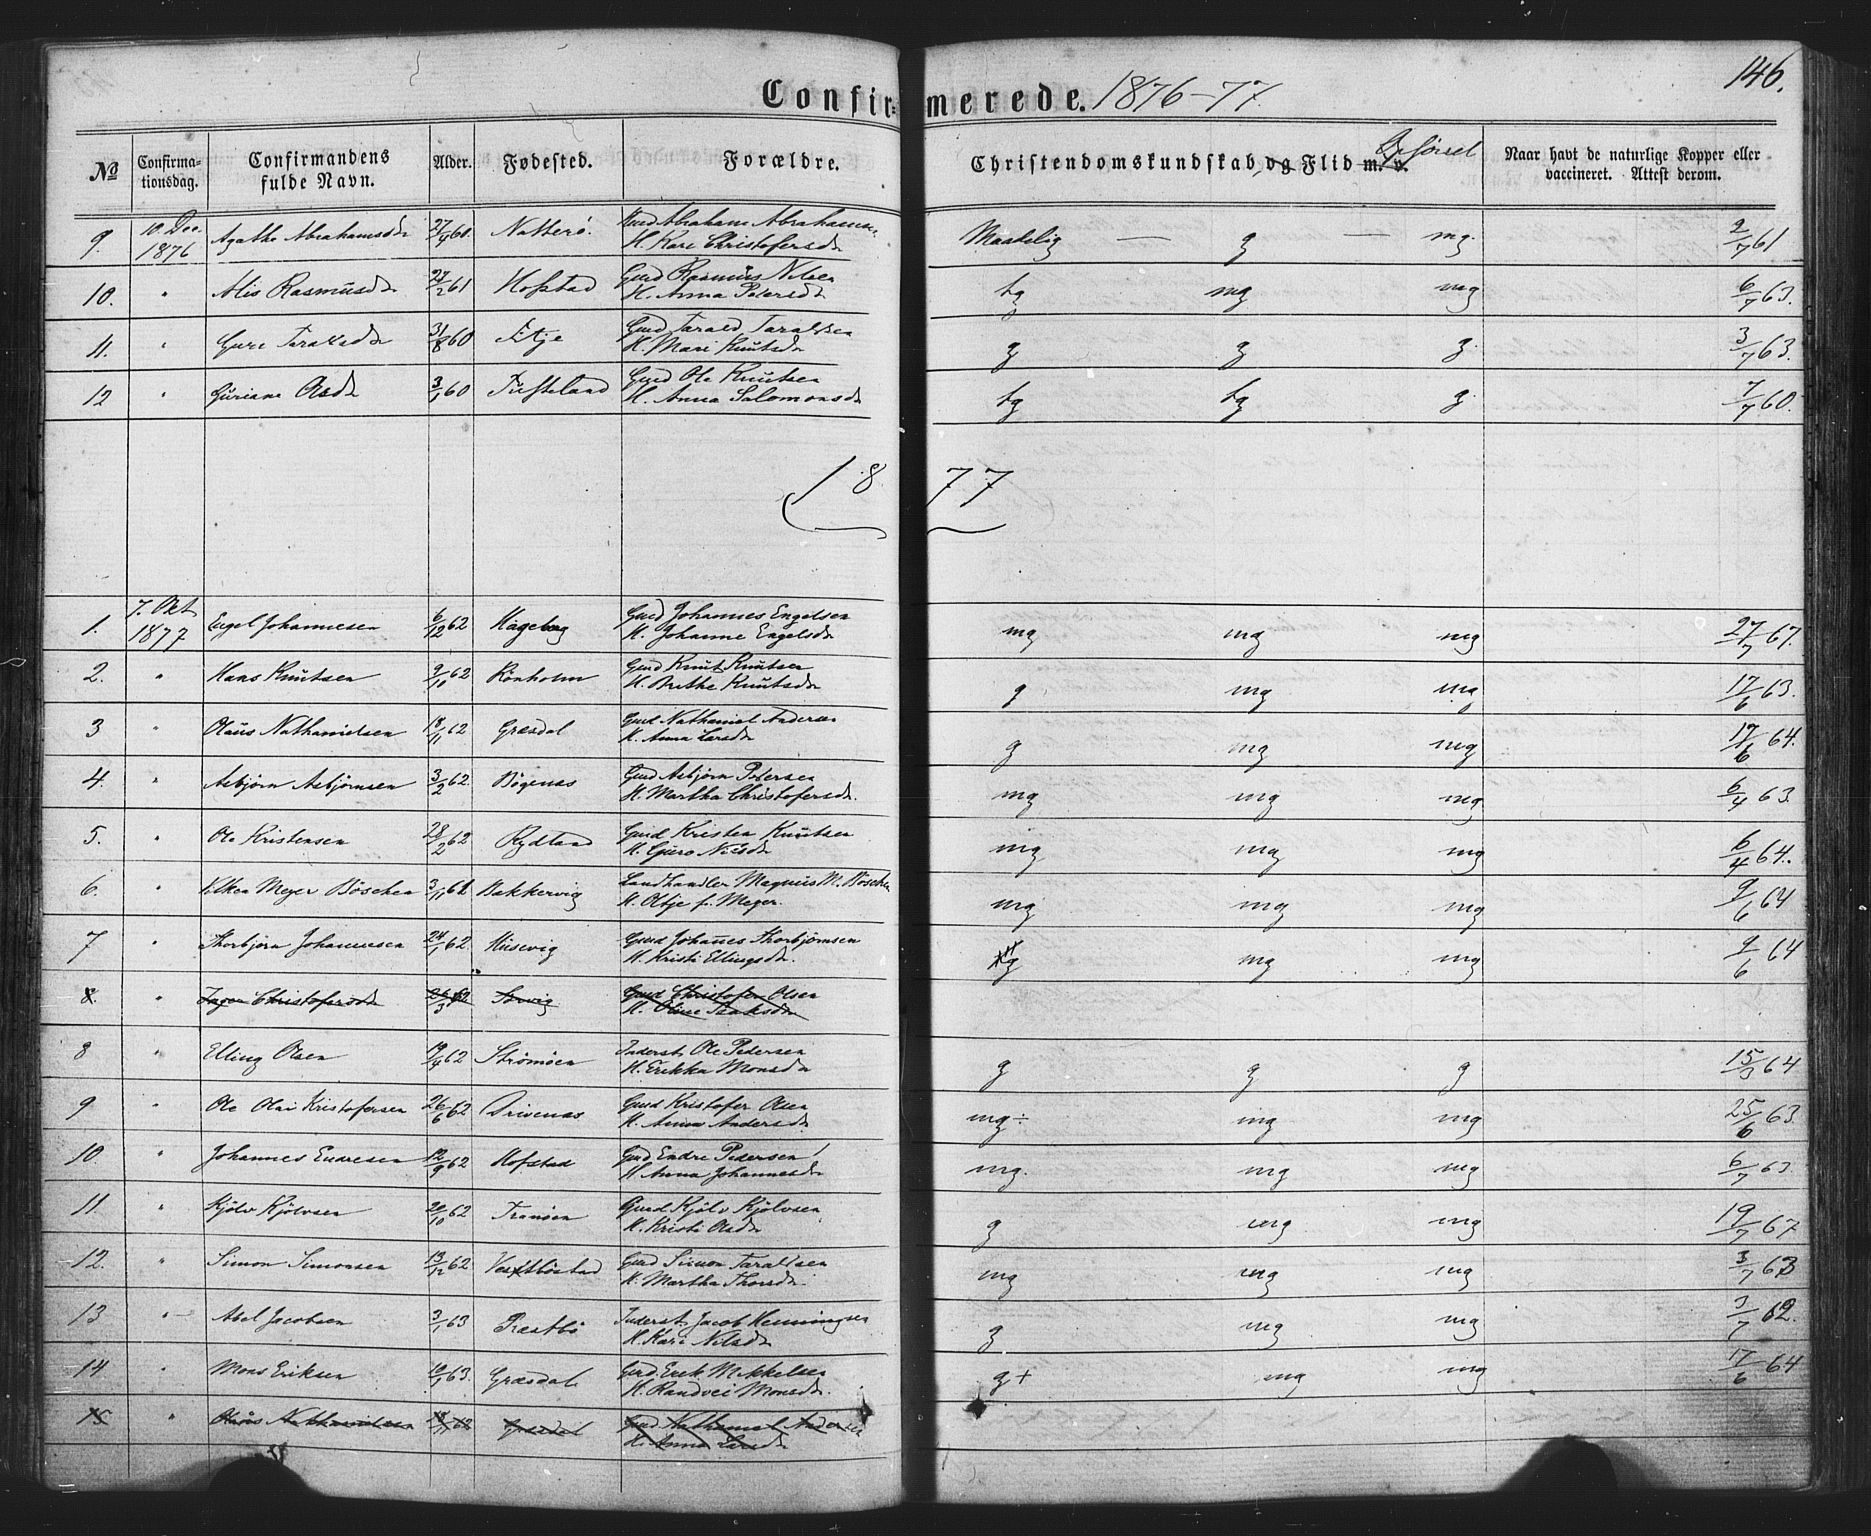 146.
Confirmerede. 1876-77.
№ Confirmationsdag. Confirmandens fulde Navn. Alder. Fødested. Forældre. Christendomskundskab, og Flid m. v. Opførsel Naar havt de naturlige Kopper eller vaccineret. Attest derom.
9. 10. Dec. 1876 Agathe Abrahamsdr 27/4 60. Natterö. Gmd Abraham Abrahamsen H. Kari Christofersdr Maadelig — g — mg. 2/7 61
10. " Alis Rasmusdr 27/2 61 Hofstad Gmd Rasmus Nilsen H. Anna Petersdr tg mg mg 6/7 63.
11. " Guri Taraldsdr 31/8 60 Fitje Gmd Tarald Taraldsen H. Mari Knutsdr g g g. 3/7 63.
12 " Guriane Olsdr 3/1 60 Tufteland Gmd Ole Knutsen H. Anna Salomonsdr tg tg g. 7/7 60.
1877
1. 7. Okt 1877 Engel Johannesen 6/12 62 Hageberg Gmd Johannes Engelsen H. Johanne Engelsdr mg mg mg 27/7 67.
2. " Hans Knutsen 9/10 62 Rönholm Gmd Knut Knutsen H. Brithe Knutsdr g mg mg 17/6 63.
3 " Olaus Nathanielsen 18/11 62 Græsdal Gmd Nathaniel Andersen H. Anna Larsdr g mg mg 17/6 64.
4. " Asbjörn Asbjörnsen 3/2 62. Bögenæs Gmd Asbjörn Petersen H. Martha Christofersdr. mg mg mg 6/4 63.
5. " Ole Kristensen 28/2 62 Rydland Gmd Kristen Knutsen H. Guro Nilsdr mg mg mg 6/4 64.
6. " Elken Meyer Böschen 3/11 61 Bakkervig Landhandler Magnus M. Böschen H. Oltje f. Meyer. mg mg mg 9/6 64
7 " Thorbjörn Johannesen 24/1 62. Husevig Gmd Johannes Thorbjörnsen H. Kristi Ellingsdr. g mg mg 9/6 64
8. " Inger Christofersdr 26/3 62 Gmd Christofer Olsen H. Oline
8 " Elling Olsen 19/4 62 Strømöen Inderst Ole Pedersen H. Erikka Monsdr g g g 15/3 64
9 " Ole Olai Kristofersen 26/6 62 Drivenæs Gmd Kristofer Olsen H. Anna Andersdr mg÷ mg mg 25/6 63.
10. " Johannes Endresen 12/9 62 Hofstad Gmd Endre Pedersen H. Anna Johannesdr mg. mg mg 6/7 63
11. " Kjölv Kjölvsen 20/10 62 Tranöen Gmd Kjölv Kjölvsen H. Kristi Olsdr g mg mg 19/7 67
12. " Simon Simonsen 13/12 62 Vestböstad Gmd Simon Taraldsen H. Martha Thorsdr mg mg mg 3/7 63
13 " Abel Jacobsen 3/1 63 Præstbö Inderst. Jacob Henningsen H. Kari Nilsdr g mg mg 3/7 62.
14 " Mons Eriksen 10/1 63. Græsdal Gmd Erik Mikkelsen H. Randvei Monsdr. g+ mg mg 17/6 64
15 " Olaus Nathanielsen 18/11 62 Græsdal Gmd Nathaniel Andersen H. Anna Larsdr